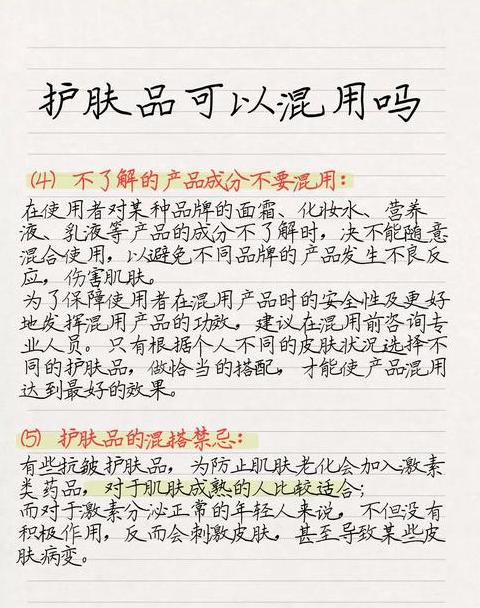 护肤品可以混用吗
(4) 不了解的产品成分不要混用：
在使用者对某种品牌的面霜、化妆水、营养
液、乳液等产品的成分不了解时，决不能随意
混合使用，以避免不同品牌的产品发生不良反
应，伤害肌肤。
为了保障使用者在混用产品时的安全性及更好
地发挥混用产品的功效，建议在混用前咨询专
业人员。只有根据个人不同的皮肤状况选择不
同的护肤品，做恰当的搭配，才能使产品混用
达到最好的效果。
(5) 护肤品的混搭禁忌：
有些抗皱护肤品，为防止肌肤老化会加入激素
类药品，对于肌肤成熟的人比较适合；
而对于激素分泌正常的年轻人来说，不但没有
积极作用，反而会刺激皮肤，甚至导致某些皮
肤病变。